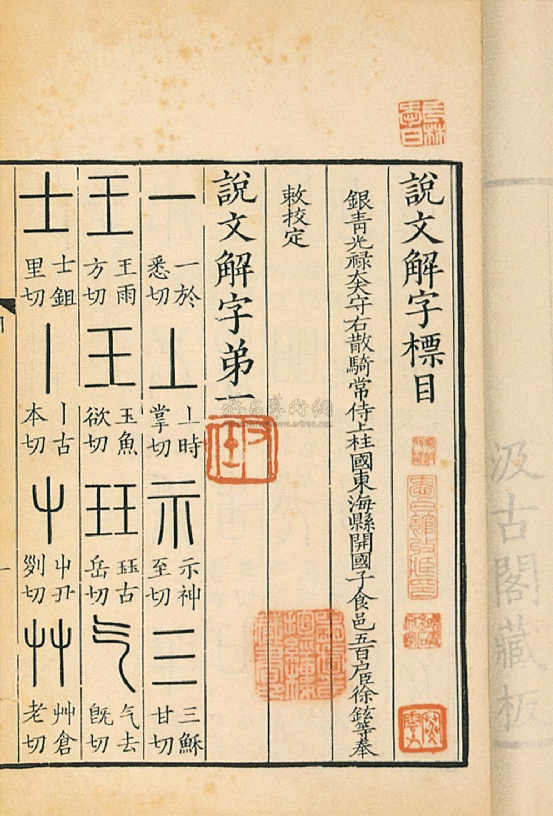 汲古閣藏板
說文解字標目
銀青光祿大夫守右散騎常侍上柱國東海縣開國子食邑五百户臣徐鉉等奉
敕校定
說文解字弟一
一 一於悉切 丄 丄時掌切 示 示神至切 三 三穌甘切
王 王雨方切 玉 玉魚欲切 玨 玨古岳切 气 气去旣切
士 士鉏里切 丨 丨古本切 屮 屮丑列切 艸 艸倉老切